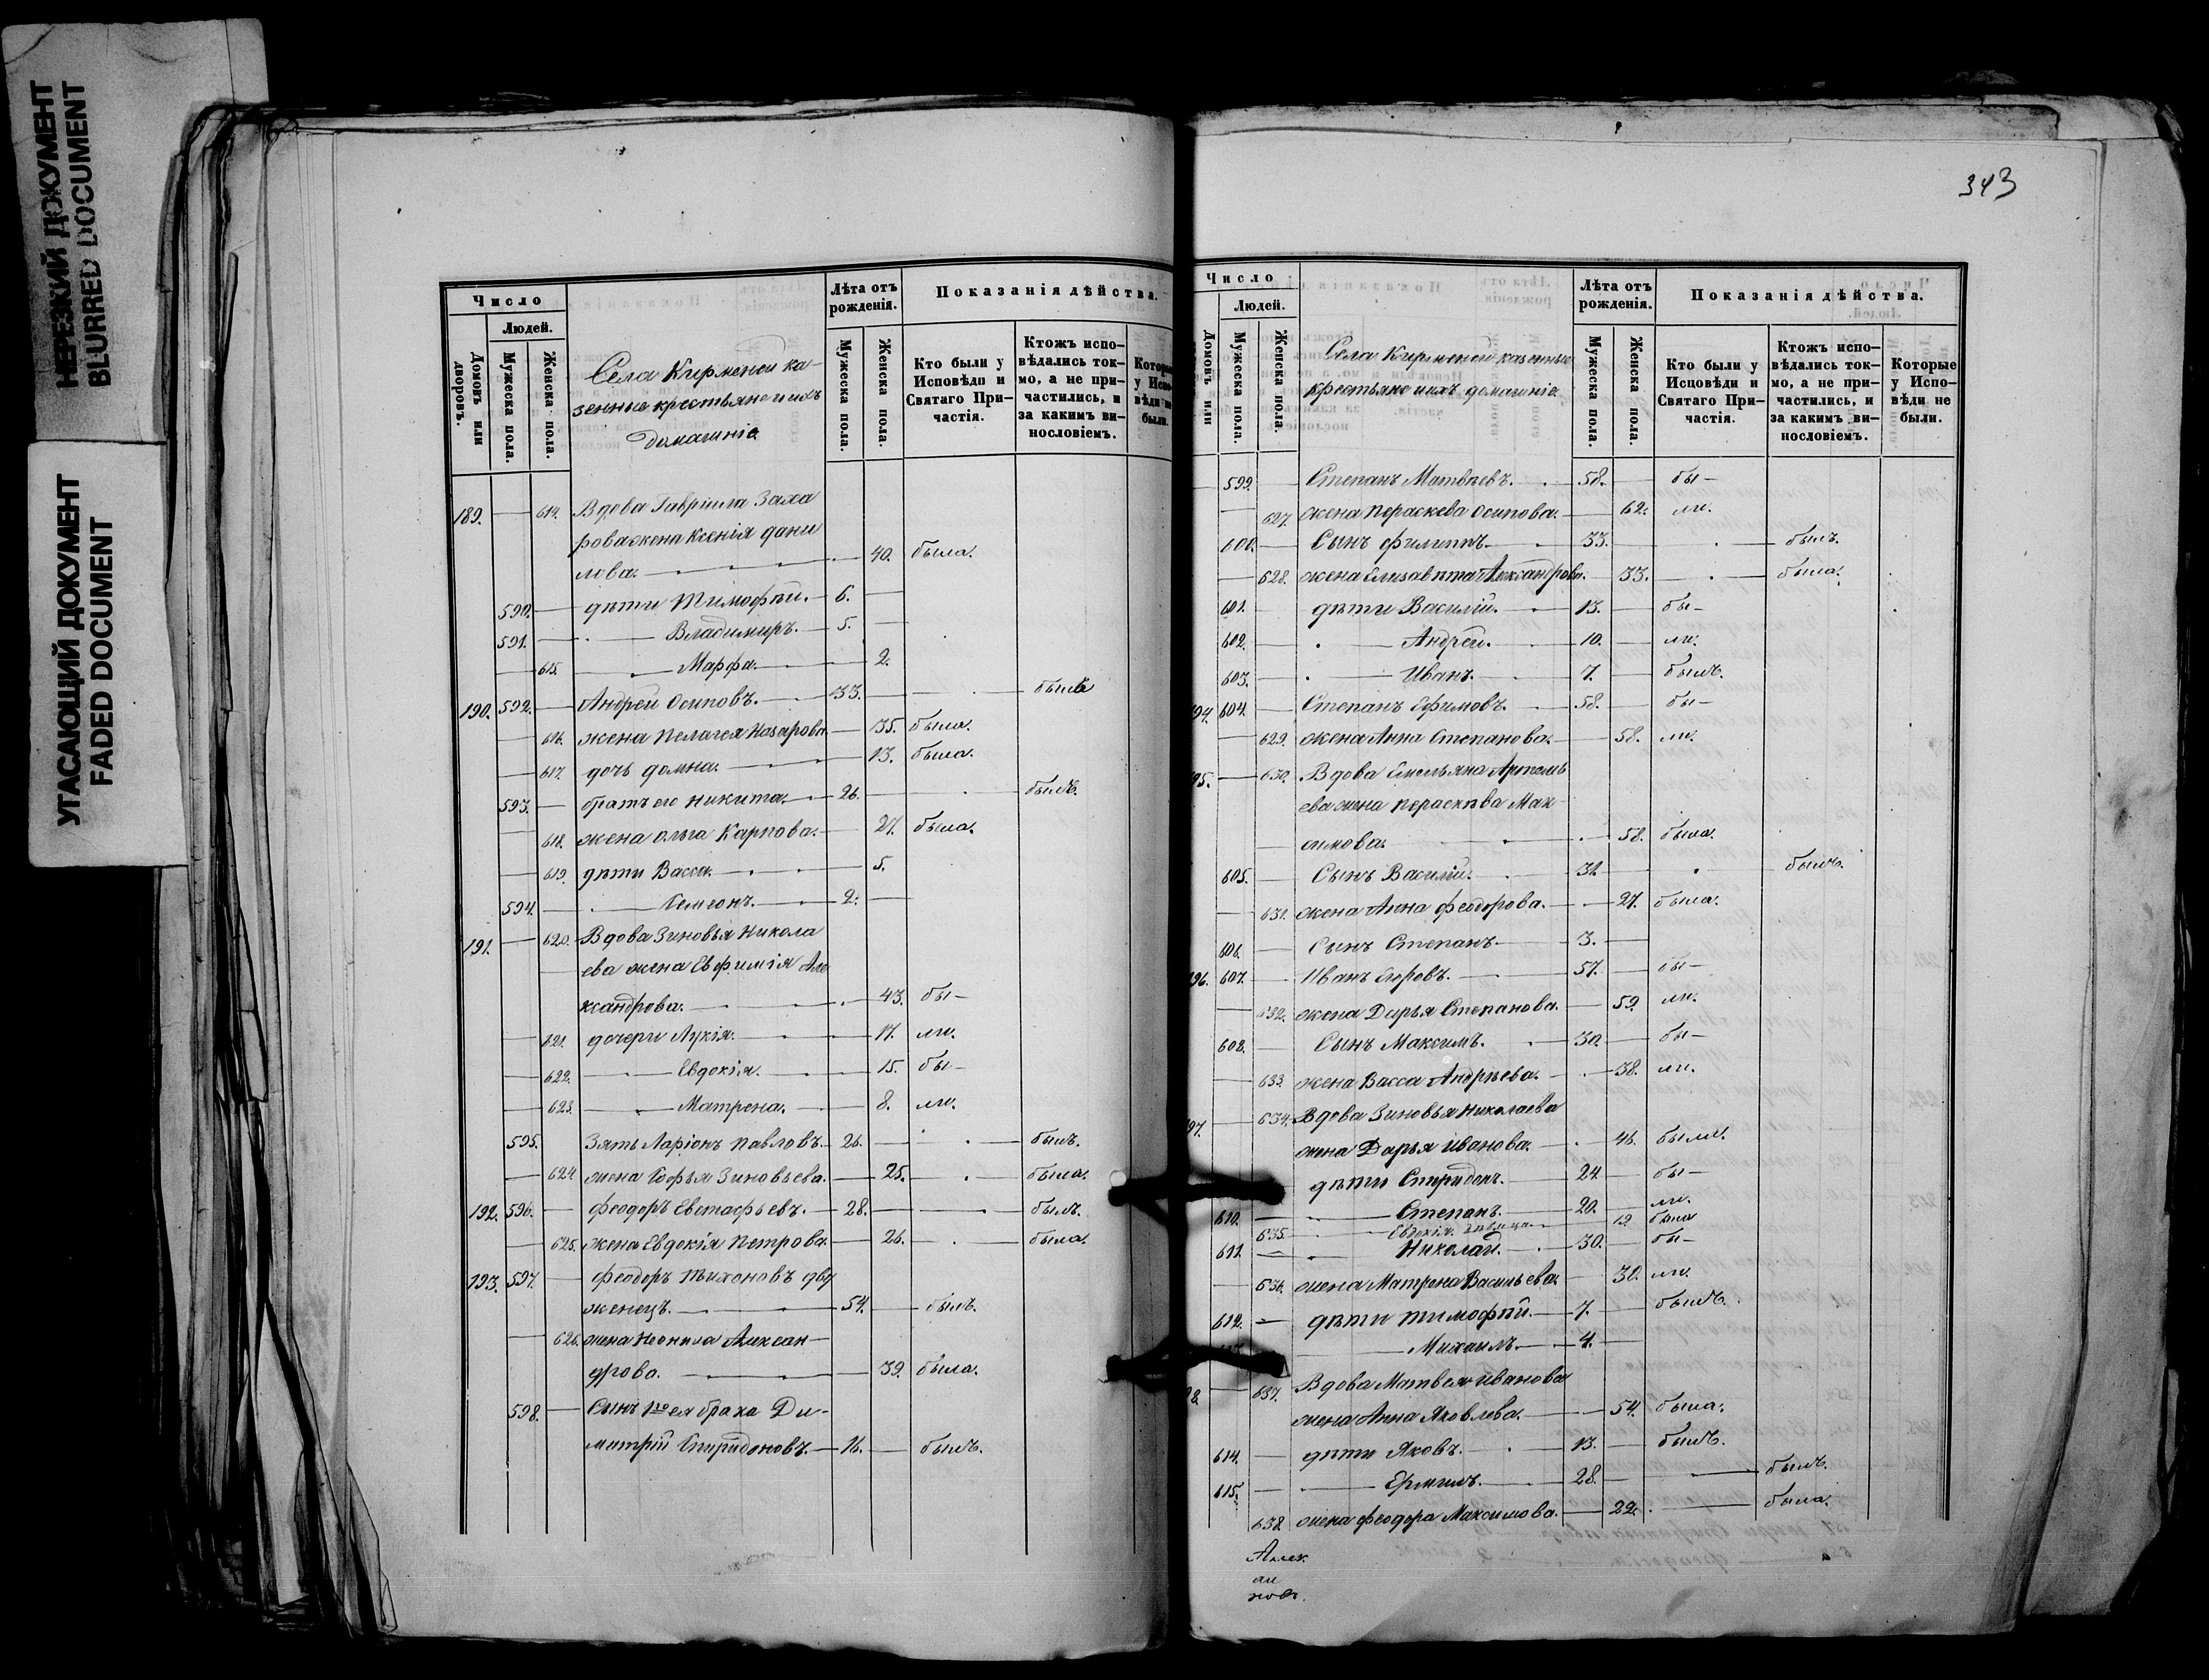 НЕРЕЗКИЙ ДОКУМЕНТ
BLURRED DOCUMENT
УГАСАЮЩИЙ ДОКУМЕНТ
FADED DOCUMENT
Число
Людей.
Домовъ или дворовъ.
Мужеска пола.
Женска пола.
Села Кирменей ка-
зенные крестьяне и ихъ
домашніе
Лѣта отъ рожденія.
Мужеска пола.
Женска пола.
Показанія дѣйства.
Кто были у Исповѣди и Святаго Причастія.
Ктожъ исповѣдались токмо, а не причастились, и за какимъ винословіемъ.
Которые у Исповѣди не были.
189. — 614. Вдова Гавріила Заха
рова жена Ксенія Дани
лова. — 40. была.
590. — дѣти Тимофѣй. — 6. —
591. — Владимиръ. — 5. —
— 615. — Марфа. — 2.
190. 592. — Андрей Осиповъ. — 33. — былъ
— 616. жена Пелагея Назарова — 35. была.
— 617. дочь Домна. — 13. была.
593. — братъ его Никита. — 26. — былъ.
— 618. жена Ольга Карпова. — 27. была.
— 619. дѣти Васса. — 5.
594. — — 2. —
191. — 620. Вдова Зиновья Никола
ева жена Евфимія Але
ксандрова. — 43. бы —
— 621. дочери Лукія. — 17. ли.
— 622. — Евдокія. — 15. бы —
— 623. — Матрена. — 8. ли.
595. Зять Ларіонъ Павловъ. — 26. — былъ.
— 624 жена Софья Зиновьева. — 25. — была.
192. 596. — Феодоръ Евстафьевъ. — 28. — былъ.
— 625. жена Евдокія Петрова. — 26. — была.
193. 597. — Феодоръ Тихоновъ дву
женецъ. — 54. — былъ.
— 626. жена Неонила Алексан —
дрова. — 39. была.
598. — Сынъ 1го ея брака Ди-
митрій Спиридоновъ. — 16. — былъ.
343
Число
Людей.
Домовъ или
Мужеска пола.
Женска пола.
Села Кирменей казенные
крестьяне и ихъ домашніе
Лѣта отъ рожденія.
Мужеска пола.
Женска пола.
Показанія дѣйства.
Кто были у Исповѣди и Святаго Причастія.
Ктожъ исповѣдались токмо, а не причастились, и за какимъ винословіемъ.
Которые у Исповѣди не были.
599. Степанъ Матвѣевъ. — 58. — бы —
— 627. жена Параскева Осипова. — 62. ли.
600. — Сынъ Филиппъ. — 33. — былъ.
— 628. жена Елизавѣта Александрова. — 33. — была.
601. дѣти Василій. — 13. — бы —
602. — Андрей. — 10. — ли.
603. — Иванъ. — 7. — былъ.
194. 604. — Степанъ Ефимовъ. — 58. — бы —
— 629. жена Анна Степанова. — 58. ли.
195. — 630. Вдова Емельяна Артемь
ева жена Параскѣва Мак
симова. — 58. была.
605. — Сынъ Василій. — 31. — былъ.
— 631. жена Анна Феодорова. — 27. была.
606. — Сынъ Степанъ. — 3. —
196. 607. — Иванъ Егоровъ. — 57. — бы —
— 632. жена Дарья Степанова. — 59 ли.
608. — Сынъ Максимъ. — 30. — бы —
— 633. жена Васса Андрѣева. — 38. ли.
197. — 634. Вдова Зиновья Николаева
жена Дарья Иванова. — 46. были.
дѣти Спиридонъ. — 24. — бы —
610. — Степанъ. — 20. — ли.
635. — Евдокія дѣвица. — 19. была
611. — Николай. — 30. — бы —
— 636. жена Матрена Васильева. — 30. ли.
612. — дѣти Тимофѣй. — 7. — былъ.
— Михаилъ. — 4. —
198. — 637. Вдова Матвея Иванова
жена Анна Яковлева. — 54. была.
614. — дѣти Яковъ. — 13. — былъ.
615. — Ермилъ. — 28. — былъ.
638. жена Феодора Максимова. — 22. — была.